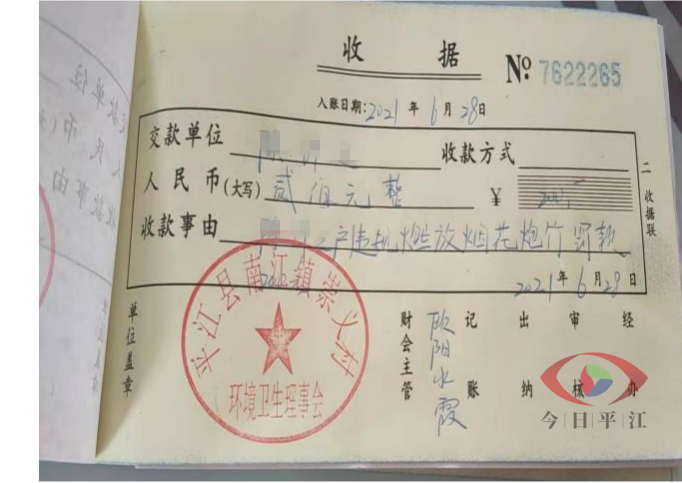 收 据
№: 7622265
入账日期: 2021 年 6 月 28 日
交款单位 陈 收款方式
人民币(大写) 贰佰元整 ¥ 200
收款事由 户违规燃放烟花炮竹罚款
2021 年 6 月 28 日
二 收据联
单位盖章
平江县南江镇崇义村
环境卫生理事会
财会主管 欧阳水霞 记账 出纳 审核 经办
今日平江